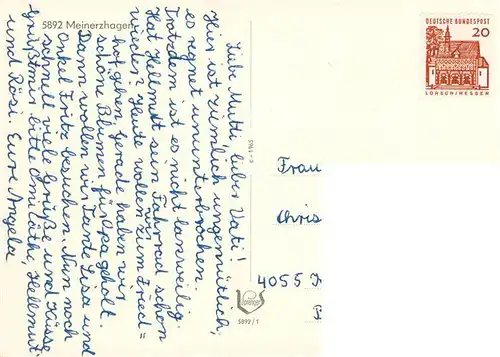 5892 Meinerzhagen
Liebe Mutti, lieber Vati!
Hier ist ziemlich ungemütlich,
es regnet ununterbrochen.
Trotzdem ist es nicht langweilig.
Hat Hellmut sein Fahrrad schon
wieder? Heute wollen zum Fried=
hof gehen, gerade haben wir
schöne Blumen für Opa geholt.
Dann wollen wir Tante Lisa und
Onkel Fritz besuchen. Nun noch
schnell viele Grüße und Küsse.
Grüßt mir bitte Omi Käthe, Hellmut
und Rosi. Eure Angela
DEUTSCHE BUNDESPOST
20
LORSCH/HESSEN
Frau
Chris
4055
c - 1965
5892/1